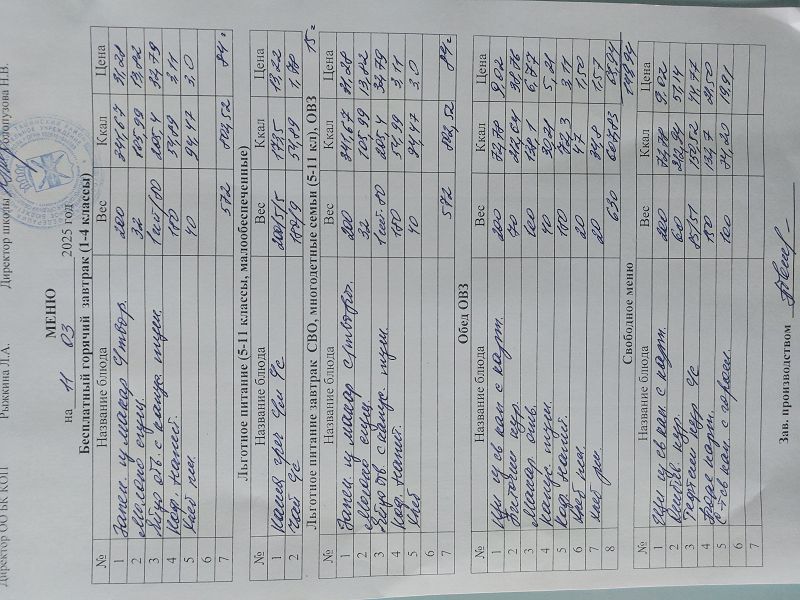 Директор ОО БК КОП Рыжкина Л.А. Директор школы Холопузова Н.В.
МЕНЮ
на 11 03 2025 год
Бесплатный горячий завтрак (1-4 классы)
№ Название блюда Вес Ккал Цена
1 Запек. из макар с/твор. 200 341,67 31,28
2 Молоко сгущ. 32 105,99 13,02
3 Яйцо отв. с капус. туш. 1 шт/80 205,4 34,79
4 Коф. напит. 180 54,89 3,11
5 Хлеб пш. 40 94,47 3,0
6
7 572 802,52 84=
Льготное питание (5-11 классы, малообеспеченные)
№ Название блюда Вес Ккал Цена
1 Каша греч 200/5/5 13,22
2 Чай с/с 54,89 1,78
15=
Льготное питание завтрак СВО, многодетные семьи (5-11 кл), ОВЗ
№ Название блюда Вес Ккал Цена
1 Запек. из макар с/творог. 200 341,67 31,28
2 Молоко сгущ. 32 105,99 13,02
3 Яйцо отв с капус. туш. 1 шт. 80 205,4 34,79
4 Коф. напит. 180 54,99 3,11
5 Хлеб 40 94,47 3.0
6
7 572 802,52 84=
Обед ОВЗ
№ Название блюда Вес Ккал Цена
1 Щи из св кап. с карт. 200 74,78 9,02
2 кур. 70 212,04 38,76
3 Макар. отв. 100 6,77
4 Капус. туш. 40 5,21
5 Коф. напит. 180 3,11
6 Хлеб пш. 20 47 1.50
7 Хлеб рж. 20 34.8 1.57
8 630
Свободное меню
№ Название блюда Вес Ккал Цена
1 Щи из св кап. с карт. 200 74,78 9,02
2 кур. 60 212,94 51,14
3 Тефтели кур с/с 85/51 150,52 44,77
4 Пюре карт. 150 134,7 21,50
5 С-т св кап. с горош 100 84,20 19,91
6
7
Зав. производством